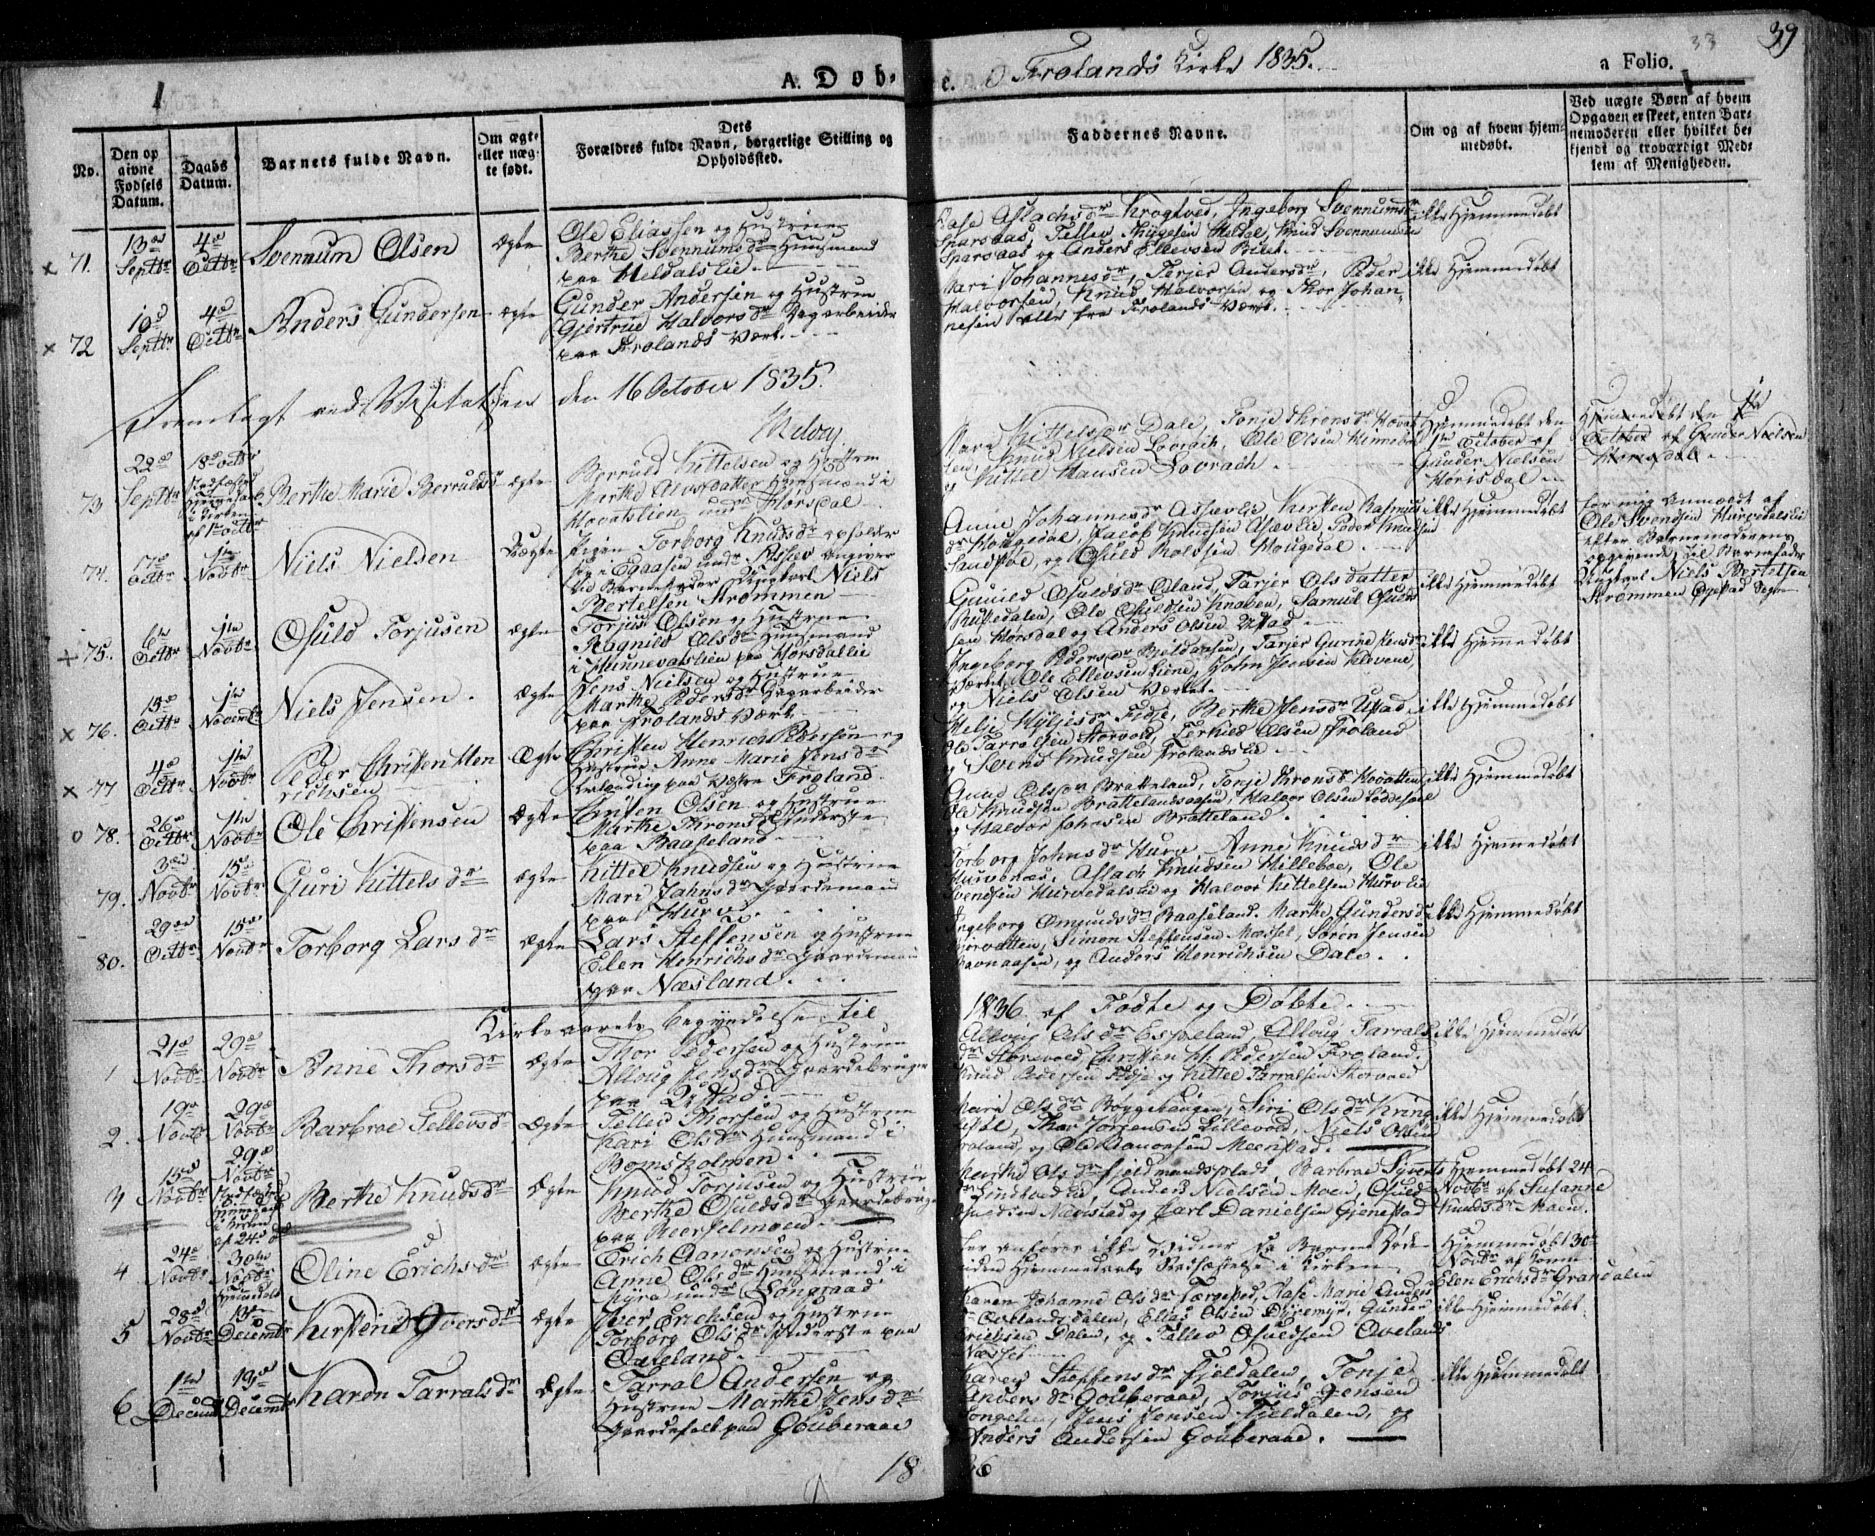 A. Døb-
c. Frolands Kirke 1835.
a Folio.
33
39
No.
Den op
givne
Fødsels
Datum.
Daabs
Datum.
Barnets fulde Navn.
Om ægte
eller uæg-
te født.
Dets
Forældres fulde Navn, borgerlige Stilling og
Opholdssted.
Faddernes Navne.
Om og af hvem hjem-
medøbt.
Ved uægte Børn af hvem
Opgaven er skeet, enten Bar-
nemoderen eller hvilket be-
kjendt og troværdigt Med-
lem af Menigheden.
x 71.
13de
Septbr
4de
Octbr
Svennum Olsen
Ægte
Ole Eliassen og Hustrue
Berthe Svennumsdr Huusmand
paa Meldalslie.
Aase Aslachsdr Krogtved, Ingeborg Svennumsdr
Sparsaas, Tellev Thygesen Meldal, Knud Svennumsen
Sparsaas og Anders Ellevsen Biset.
ikke Hjemmedøbt
x 72
10d
Septbr
4d
Octbr
Anders Gundersen
Ægte
Gunder Andersen og Hustrue
Gjertrud Halvorsdr Dagarbeider
paa Frolands Værk.
Mari Johannesdr, Terjer Andersdr, Peder
Halvorsen, Knud Halvorsen og Thor Johan-
nesen alle fra Frolands Værk.
ikke Hjemmedøbt
Fremlagt ved Visitatsen den 16 October 1835.
73
22d
Septbr
18d Octbr
Berthe Marie Berruldsdr
Ægte
Berruld Kittelsen og Hustrue
Marthe Alvsdatter Huusmand i
Hovatslien under Horsdal
Kittelsdr Dale, Tonje Thronsdr Hovats
Knud Nielsen Lovraik, Ole Olsen Kinnebas
og Kittel Hansen Lovrach.
Hjemmedøbt den
1te October af
Gunder Nielsen
Horisdal
Hjemmedøbt den 1te
October af Gunder Nielsen
Horisdal
74.
7de
Octbr
1te
Novbr
Niels Nielsen
Uægte
Pigen Torborg Knudsdr opholder
sig i Egaasen under Assev Angiver
til Barnefader Ungkarl Niels
Bertelsen Strømmen
Anne Johannesdr Assev Lie, Kirsten Rasmus
dr Hougedal, Jacob Knudsen Assev Lie, Peder Knudsen
Sandstøl, og Osuld Rolvsen Hougedal.
ikke Hjemmedøbt
For mig Anmeldt af
Ole Svendsen Hurvedals Lie
efter Barnemoderens
opgivende, til Barnefader
Ungkarl Niels Bertelsen
Strømmen Øyestad Sogn
x 75.
6te
Octbr
1te
Novbr
Osuld Torjusen
Ægte
Torjus Olsen og Hustrue
Ragnild Olsdr Huusmand
i Hunnevatslien paa Horsdallie
Gunild Osuldsdr Oland, Tarjer Olsdatter
Risedalen, Ole Osuldsen Knaben, Samuel Osulds
sen Horsdal og Anders Olsen Ufsad
ikke Hjemmedøbt
x 76.
15d
Octbr
1te
Novembr
Niels Jensen.
Ægte
Jens Nielsen og Hustrue
Marthe Pedersdr Dagarbeider
paa Frolands Værk
Ingeborg Pedersdr Beldaasen, Tarjer Gundersensdr
Værket, Ole Ellevsen Liene, John Jensen Klevene
og Niels Olsen Værket.
ikke Hjemmedøbt
x 77
4d
Octbr
1te
Novbr
Peder Christen Hen
richsen
Ægte
Christen Henrich Pedersen og
Hustrue Anne Marie Jensdr
paa Vestre Froland.
Helje Hyljesdr Fidje, Berthe Jensdr Ufsad
Ole Tarralsen Storvold, Terkild Olsen Froland
og Svend Knudsen Frolandslie
ikke Hjemmedøbt
o 78.
26d
Octbr
1te
Novbr
Ole Christensen
Ægte
Christen Olsen og Hustrue
Marthe Thronsdr Inderste
paa Baaseland
Aund Olsdr Bratteland, Tonje Thronsdr Hovatten
Ole Knudsen Brattelandsaasen, Halvor Olsen Loddesøl
og Halvor Johnsen Bratteland.
ikke Hjemmedøbt
79.
3die
Novbr
15d
Novbr
Guri Kittelsdr
Ægte
Kittel Knudsen og Hustrue
Mari Jahnsdr Gaardemand
paa Hurv
Torborg Johnsdr Hurv Anne Knudsdr
Hurvenæs, Aslach Knudsen Hilleboe, Ole
Svendsen Hurvedalslie og Halvor Kittelsen Hurvlie
ikke Hjemmedøbt
80.
29de
Octbr
15de
Novbr
Torborg Larsdr
Ægte
Lars Steffensen og Hustrue
Elen Henrichsdr Gaardemand
paa Næsland.
Ingeborg Omundsdr Baaseland, Marthe Gundersdr
Hovatten, Simon Steffensen Mæssel, Søren Jensen
Ravnaasen, og Anders Henrichsen Dale.
ikke Hjemmedøbt
Kirkeaarets begyndelse til 1836. af Fødte og Døbte.
1
21d
Novbr
29d
Novbr
Anne Thorsdr
Ægte
Thor Pedersen og Hustrue
Alloug Jensdr Gaardebruger
paa Ufstad.
Allvig Olsdr Espeland, Alloug Tarrals
dr Storevold, Christen H. Pedersen Froland.
Knud Pedersen Fidje og Kittel Tarralsen Storvold
ikke Hjemmedøbt
2.
19d
Novbr
29d
Novbr
Barbroe Tellevsdr
Ægte
Tellev Thorsen og Hustrue
Kari Olsdr Huusmand i
Bomsholmen.
Marie Olsdr Bøggehaugen, Siri Olsdr Kring
Thor Jørgensen Lillevold, Niels Olsen
Froland, og Ole Aanonsen Meenstad.
ikke Hjemmedøbt
3
15d
Novbr
29d
Novbr
Berthe Knudsdr
Ægte
Knud Torjusen og Hustrue
Berthe Osuldsdr Gaardebruger
paa Meerselmoen
Marthe Olsdr Fjeldmandsplads Barbroe Syverts
dr Lindtvedlie, Anders Nielsen Moen, Osuld
Osuldsen Neversted og Carl Danielsen Gjenestad
Hjemmedøbt 24
Novbr af Susanne
Knudsdr Moen.
4
24d
Novbr
30te
Novbr
Hjemmedøbt
Oline Erichsdr
Ægte
Erich Aanonsen og Hustrue
Anne Olsdr Huusmand i
Myra under Songraad
her anføres ikke Vidner da Barnet døde
inden Hjemmedaabs Stadfæstelse i Kirken
Hjemmedøbt 30te
Novbr af Konen
Elen Erichsdr Grandalen
5
28d
Novbr
13de
Decembr
Kirstene Iversdr
Ægte
Iver Erichsen og Hustrue
Torborg Olsdr Inderste paa
Oveland
Karen Johanne Olsdr Færgestad, Aase Marie Anders
dr Ovelandsdalen, Ellas Olsen Dybemyr, Gunder
Erichsen Dalen, og Tellev Osuldsen Ovelands
Næsset
ikke Hjemmedøbt
6
1te
Decembr
19de
Decembr
Karen Tarralsdr
Ægte
Tarral Andersen og
Hustrue Marthe Jensdr
Gaardefolk paa Gouberaae
Karen Steffensdr Fjeldalen, Tonje
Andersdr Gouberaae, Torjus Jensen
Songelien, Jens Jensen Fjeldalen, og
Anders Andersen Gouberaae.
ikke Hjemmedøbt
1836